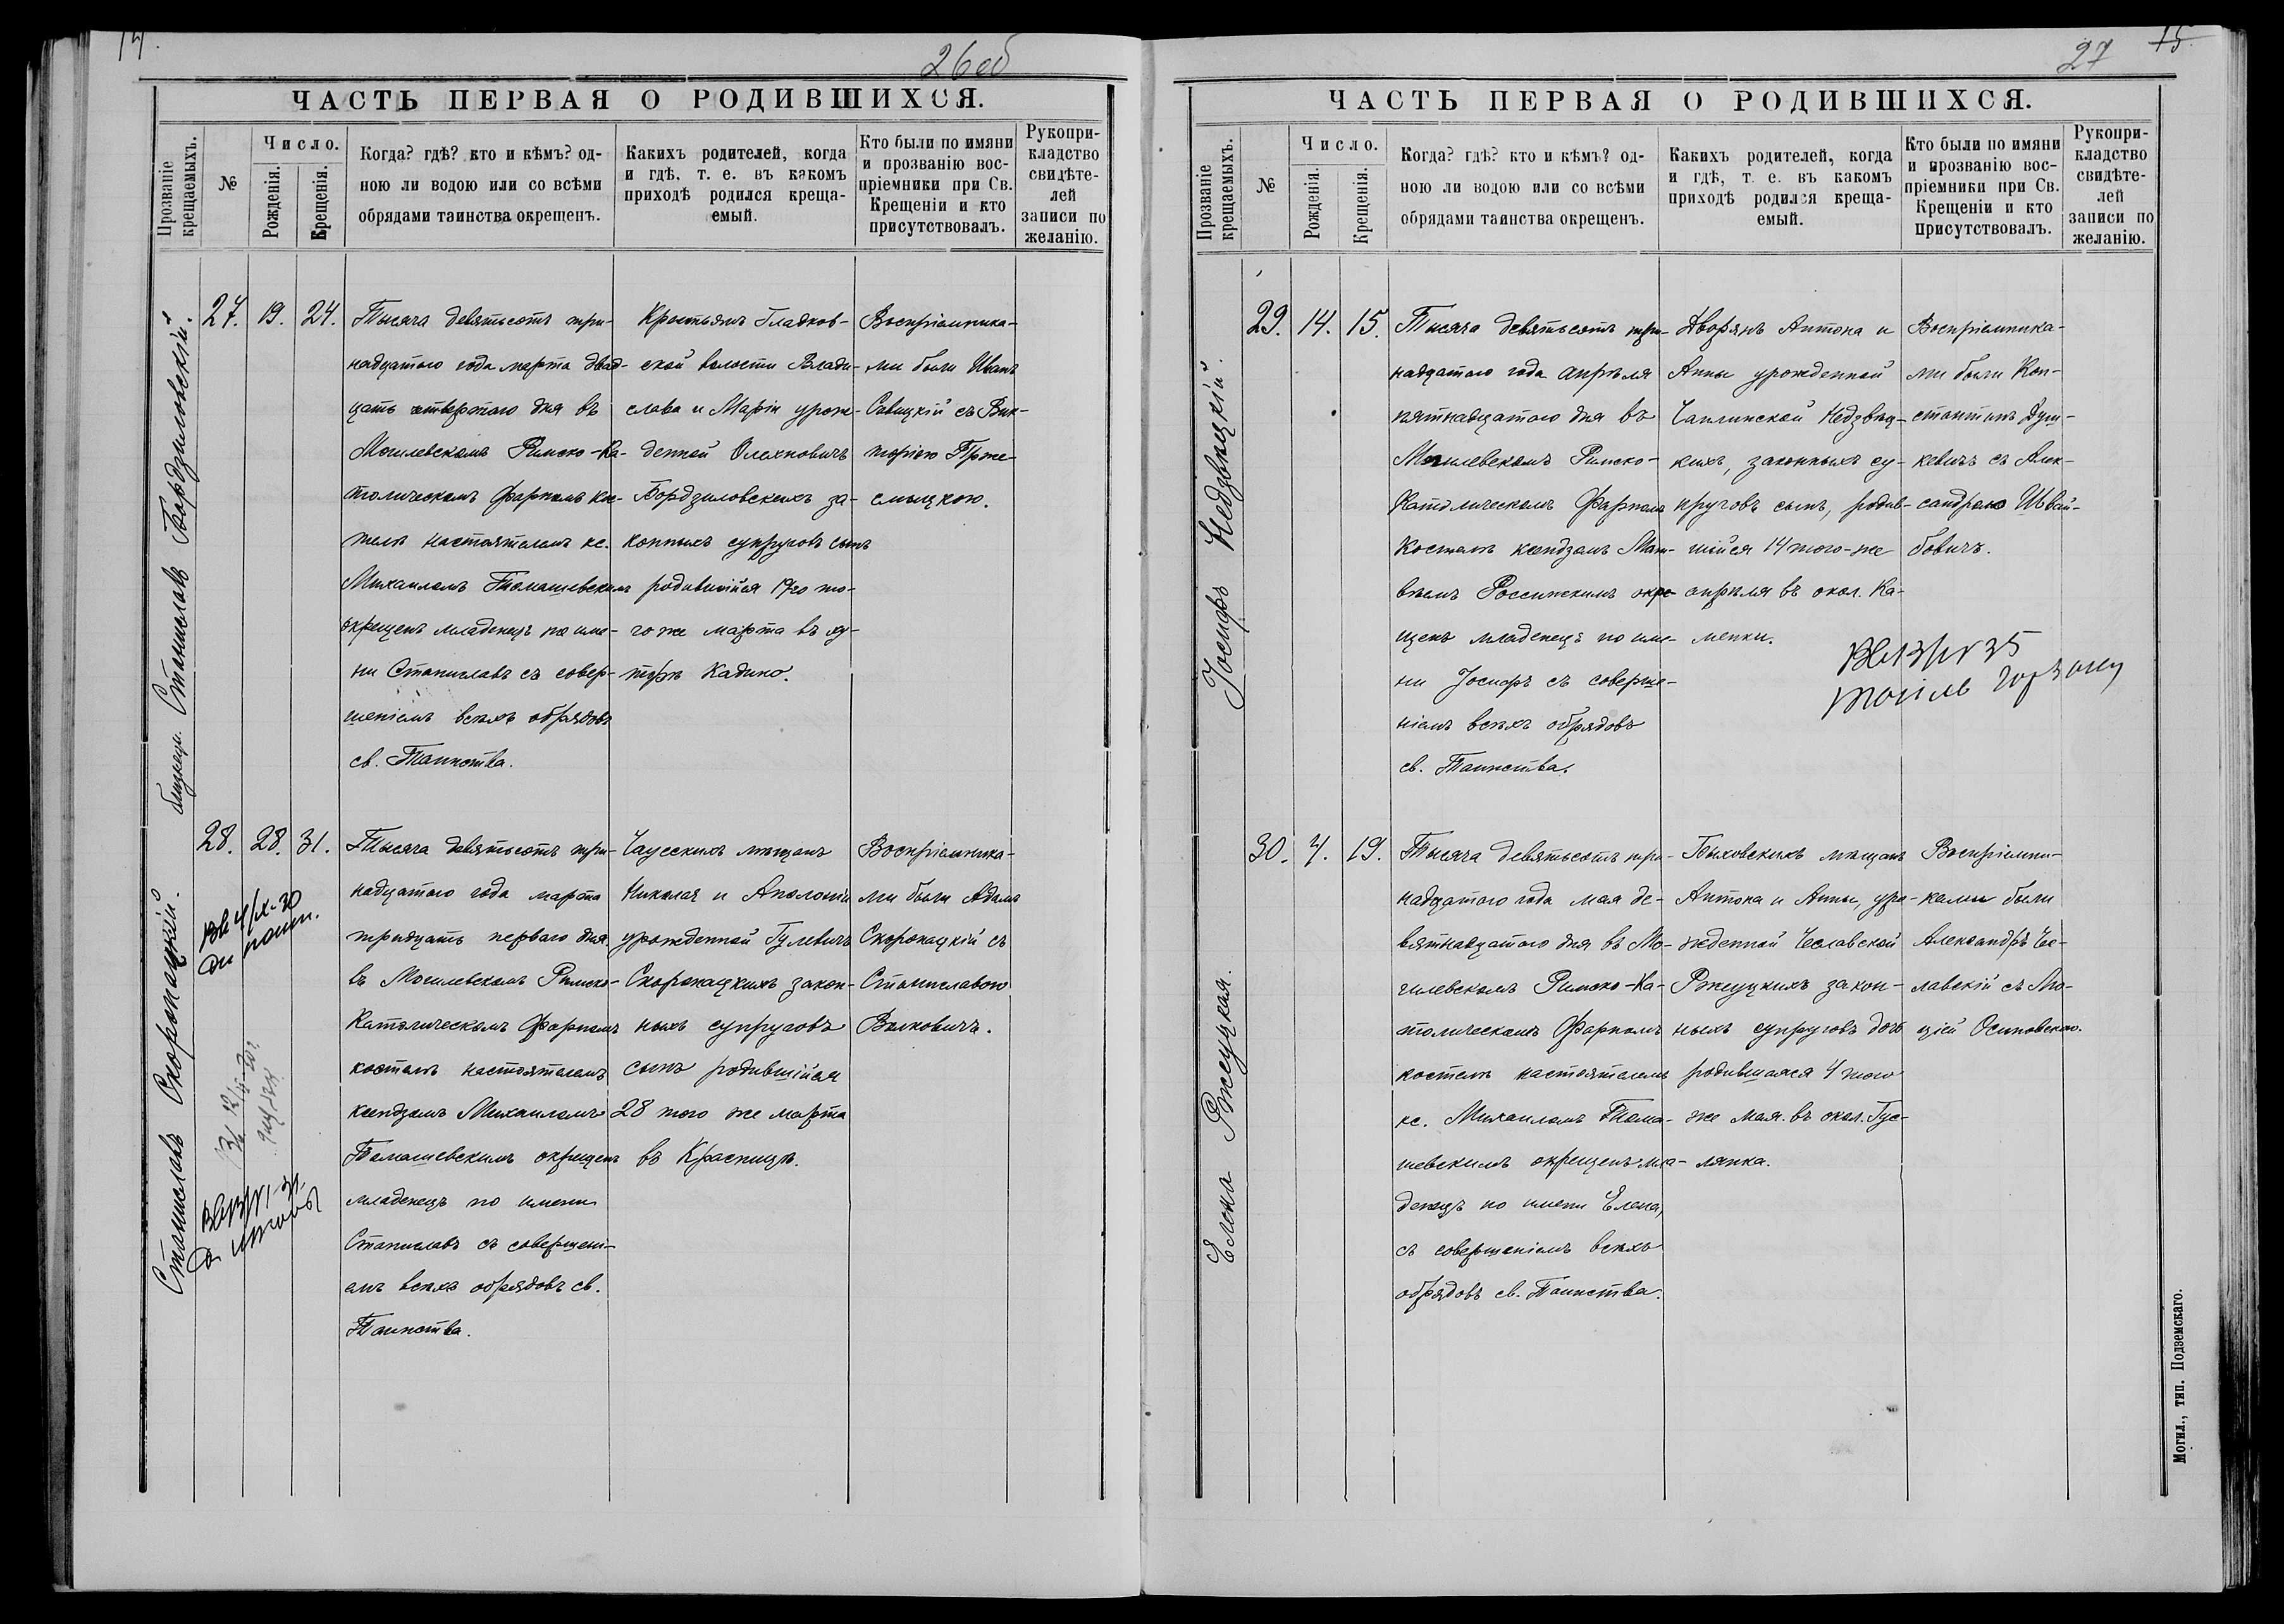 14.
26 об
ЧАСТЬ ПЕРВАЯ О РОДИВШИХСЯ.
Прозваніе крещаемыхъ.
№
Число.
Рожденія.
Крещенія.
Когда? гдѣ? кто и кѣмъ? од-
ною ли водою или со всѣми
обрядами таинства окрещенъ.
Какихъ родителей, когда
и гдѣ, т. е. въ какомъ
приходѣ родился креща-
емый.
Кто были по имяни
и прозванію вос-
пріемники при Св.
Крещеніи и кто
присутствовалъ.
Рукопри-
кладство
свидѣте-
лей
записи по
желанію.
Станиславъ Бордзиловскій
27. 19. 24.
Тысяча девятьсотъ три-
надцатого года марта двад-
цать четвертого дня въ
Могилевскомъ Римско-Ка-
толическомъ фарномъ кос-
телѣ настоятелемъ кс.
Михаиломъ Томашевскимъ
окрещенъ младенецъ по име-
ни Станиславъ съ совер-
шеніемъ всѣхъ обрядовъ
св. Таинства.
Крестьянъ Гладков-
ской волости Влади-
слава и Маріи урож-
денной Олехновичъ
Бордзиловскихъ за-
конныхъ супруговъ сынъ
родившійся 19го то-
го же марта въ ху-
торѣ Кадино.
Воспріемника-
ми были Иванъ
Савицкій съ Вик-
торіею Прже-
смыцкою.
Станиславъ Скоропацкій.
28. 28. 31.
Тысяча девятьсотъ три-
надцатого года марта
тридцать перваго дня
въ Могилевскомъ Римско-
Католическомъ Фарномъ
костелѣ настоятелемъ
ксендзомъ Михаиломъ
Томашевскимъ окрещенъ
младенецъ по имени
Станиславъ съ совершені-
емъ всѣхъ обрядовъ св.
Таинства.
Чаусскихъ мѣщанъ
Николая и Аполоніи
урожденной Гулевичъ
Скоропацкихъ закон-
ныхъ супруговъ
сынъ родившійся
28 того же марта
въ Красницѣ.
Воспріемника-
ми были Адамъ
Скоропацкій съ
Станиславою
Волковичъ.
15.
27
ЧАСТЬ ПЕРВАЯ О РОДИВШИХСЯ.
Прозваніе крещаемыхъ.
№
Число.
Рожденія.
Крещенія.
Когда? гдѣ? кто и кѣмъ? од-
ною ли водою или со всѣми
обрядами таинства окрещенъ.
Какихъ родителей, когда
и гдѣ, т. е. въ какомъ
приходѣ родился креща-
емый.
Кто были по имяни
и прозванію вос-
пріемники при Св.
Крещеніи и кто
присутствовалъ.
Рукопри-
кладство
свидѣте-
лей
записи по
желанію.
Іосифъ Недзвецкій.
29. 14. 15.
Тысяча девятьсотъ три-
надцатого года апрѣля
пятнадцатого дня въ
Могилевскомъ Римско-
Католическомъ Фарномъ
Костелѣ ксендзомъ Мат-
вѣемъ Россинскимъ окре-
щенъ младенецъ по име-
ни Іосифъ съ соверше-
ніемъ всѣхъ обрядовъ
св. Таинства.
Дворянъ Антона и
Анны урожденной
Чаплинской Недзвец-
кихъ, законныхъ су-
пруговъ сынъ, родив-
шійся 14 того-же
апрѣля въ окол. Ка-
менки.
Воспріемника-
ми были Кон-
стантинъ Душ-
кевичъ съ Алек-
сандрою Швай-
бовичъ.
Елена Ржеуцкая.
30. 4. 19.
Тысяча девятьсотъ три-
надцатого года мая де-
вятнадцатого дня въ Мо-
гилевскомъ Римско-Ка-
толическомъ Фарномъ
костелѣ настоятелемъ
кс. Михаиломъ Тома-
шевскимъ окрещенъ мла-
денецъ по имени Елена,
съ совершеніемъ всѣхъ
обрядовъ св. Таинства.
Быховскихъ мѣщанъ
Антона и Анны, уро-
жденной Чеславской
Ржеуцкихъ закон-
ныхъ супруговъ дочь
родившаяся 4 того
же мая въ окол. Гус-
лянка.
Воспріемни-
ками были
Александръ Чес-
лавскій съ Лю-
ціей Осиповскою.
Могил., тип. Подземскаго.